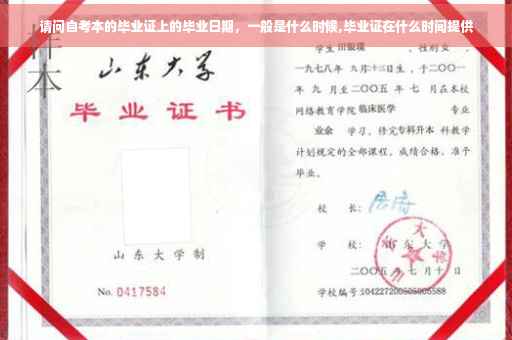 请问自考本的毕业证上的毕业日期，一般是什么时候,毕业证在什么时间提供
样本
山东大学
毕业证书
山东大学制
No. 0417584
学生 性别女，
一九七八年 九月十三日生，于二〇〇一
年 九 月至二〇〇五 年 七 月在本校
网络教育学院临床医学 专业
业余 学习，修完专科升本 科教学
计划规定的全部课程，成绩合格，准予
毕业。
校 长：
学 校： 山东大学
二〇〇五年 七 月十 日
学校编号:104227200505005588